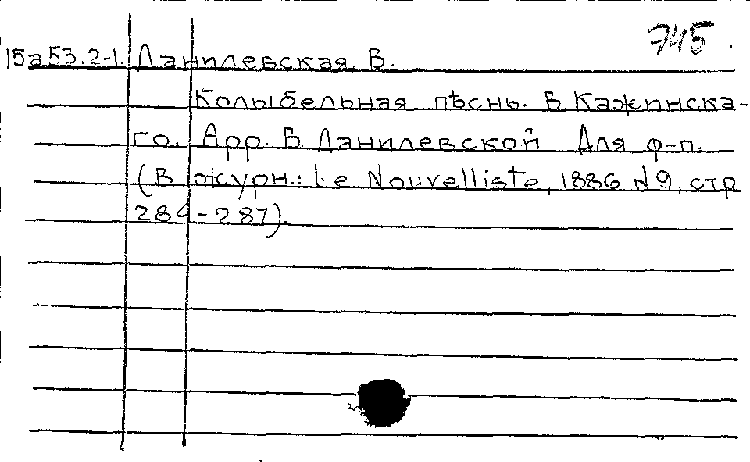 745.
15а53.2-1. Данилевская, В.
Колыбельная пѣснь. В Кажинска-
го. Арр. В Данилевской Для ф-п.
(В журн.: Le Nouvelliste, 1886 №9, стр
284-287).